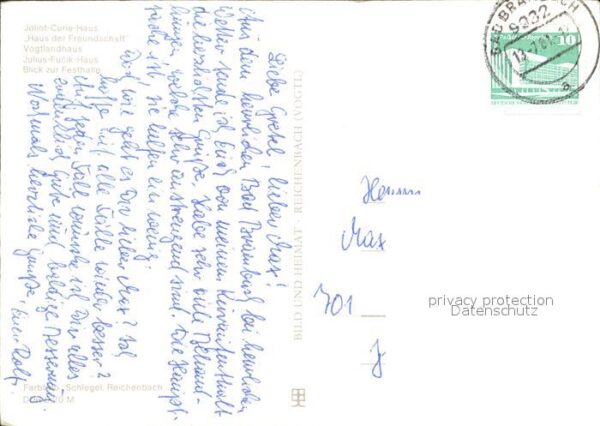 Joliot-Curie-Haus
"Haus der Freundschaft"
Vogtlandhaus
Julius-Fučik-Haus
Blick zur Festhalle
Liebe Gretel! Lieber Max!
Aus dem herrlichen Bad Brambach bei herrlichem
Wetter sende ich Euch von meinem Kuraufenthalt
die herzlichsten Grüße. Habe sehr viele
welche sehr anstrengend sind. Die Haupt-
sache ist, sie helfen ein wenig.
Doch wie geht es Dir lieber Max?
alle wieder besser?
Auf jeden Fall wünsche ich Dir alles
erdenklich Gute und baldige Besserung.
Nochmals herzliche Grüße, Euer Rolf.
Farbfoto: Schlegel, Reichenbach
BILD UND HEIMAT · REICHENBACH (VOGTL)
BAD BRAMBACH
9932
a
10
Herrn
Max
701
privacy protection
Datenschutz